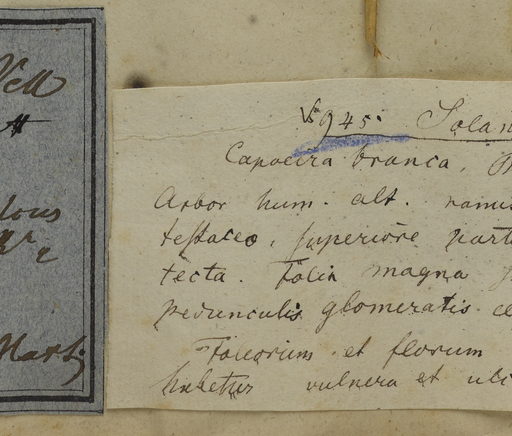 Vell
945. Solan
Capoeira branca.
Arbor hum. alt. ramis
testaceo, superiore parte
tecta. Folia magna
pedunculis glomeratis
Foliorum et florum
habetur vulnera et ulc
Mart